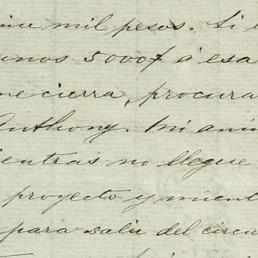 mil pesos. Si
5000 $ á esa
me cierra, procura
Anthony. Mi ami
mientras no llegue
proyecto y mient
para salir del circu